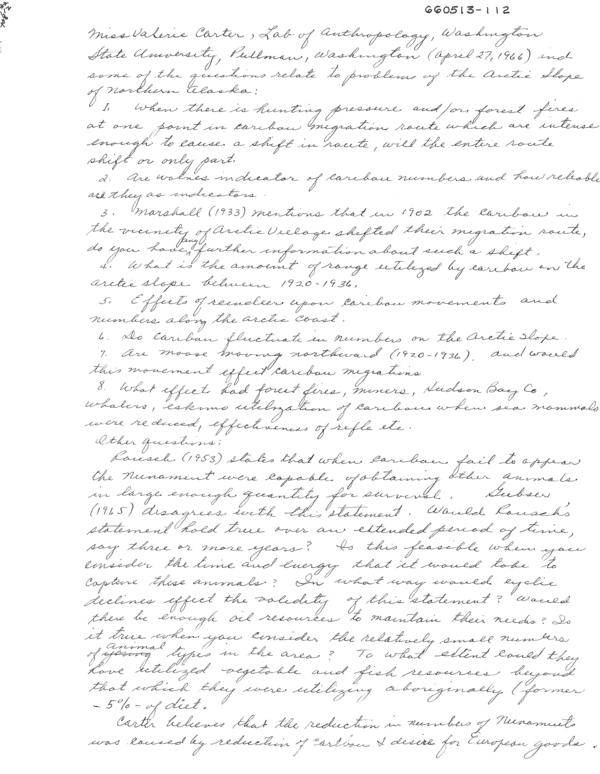 660513-112
Miss Valerie Carter, Lab of Anthropology, Washington
State University, Pullman, Washington (April 27, 1966) ind
some of the questions relate to problem of the Arctic Slope
of Northern Alaska:
1. When there is hunting pressure and/or forest fires
at one point in caribou migration route which are intense
enough to cause a shift in route, will the entire route
shift or only part.
2. Are wolves indicator of caribou numbers and how reliable
are they as indicators.
3. Marshall (1933) mentions that in 1902 the caribou in
the vicinity of Arctic Village shifted their migration route,
do you have any further information about such a shift.
4. What is the amount of range utilized by caribou on the
arctic slope between 1920-1936.
5. Effects of reindeer upon caribou movements and
numbers along the arctic coast.
6. Do caribou fluctuate in numbers on the Arctic Slope.
7. Are moose moving northward (1920-1936). and would
this movement effect caribou migrations
8. What effects had forest fires, miners, Hudson Bay Co,
whalers, eskimo utilization of caribou when sea mammals
were reduced, effectiveness of rifle etc.
Other questions:
Rausch (1953) states that when caribou fail to appear
the Nunamiut were capable of obtaining other animals
in large enough quantity for survival. Gubser
(1965) disagrees with this statement. Would Rausch's
statement hold true over an extended period of time,
say three or more years? Is this feasible when you
consider the time and energy that it would take to
capture these animals? In what way would cyclic
declines effect the validity of this statement? Would
there be enough oil resources to maintain their needs? Is
it true when you consider the relatively small numbers
of animal types in the area? To what extent could they
have utilized vegetable and fish resources beyond
that which they were utilizing aboriginally (former
- 5% - of diet.
Carter believes that the reduction in numbers of Nunamiuts
was caused by reduction of caribou & desire for European goods.